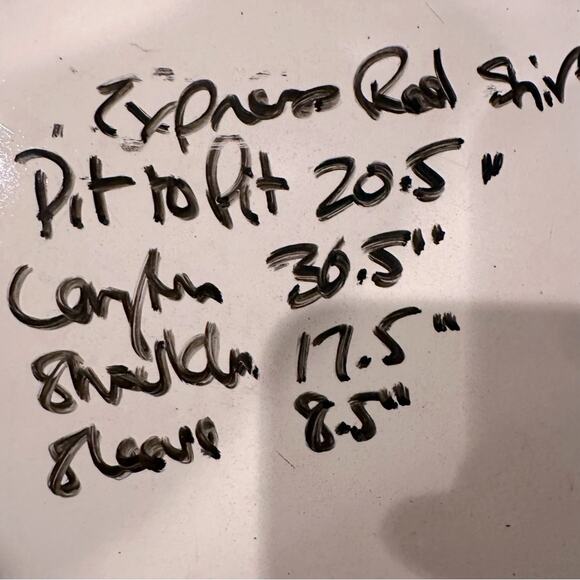 Express Red Shir
Pit to Pit 20.5"
Length 30.5"
Shoulder 17.5"
Sleeve 8.5"